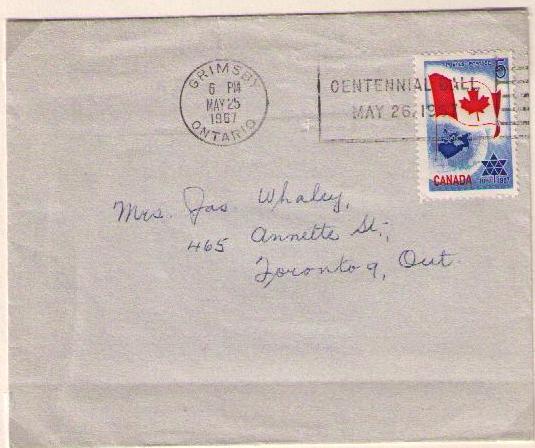 GRIMSBY
6 PM
MAY 25
1967
ONTARIO
CENTENNIAL BALL
MAY 26, 1967
5
CANADA
1867 1967
Mrs. Jas. Whaley,
465 Annette St.,
Toronto 9, Ont.